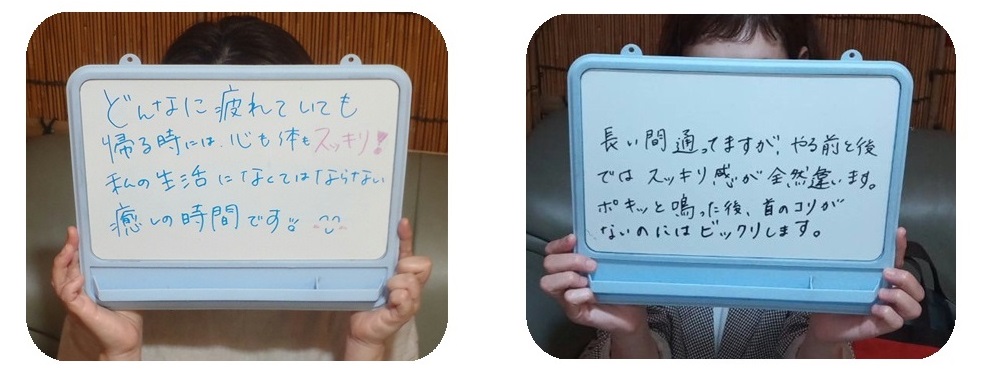 どんなに疲れていても
帰る時には、心も体もスッキリ!
私の生活になくてはならない
癒しの時間です。
長い間通ってますが、やる前と後
では スッキリ感が全然違います。
ポキッと鳴った後、首のコリが
ないのにはビックリします。